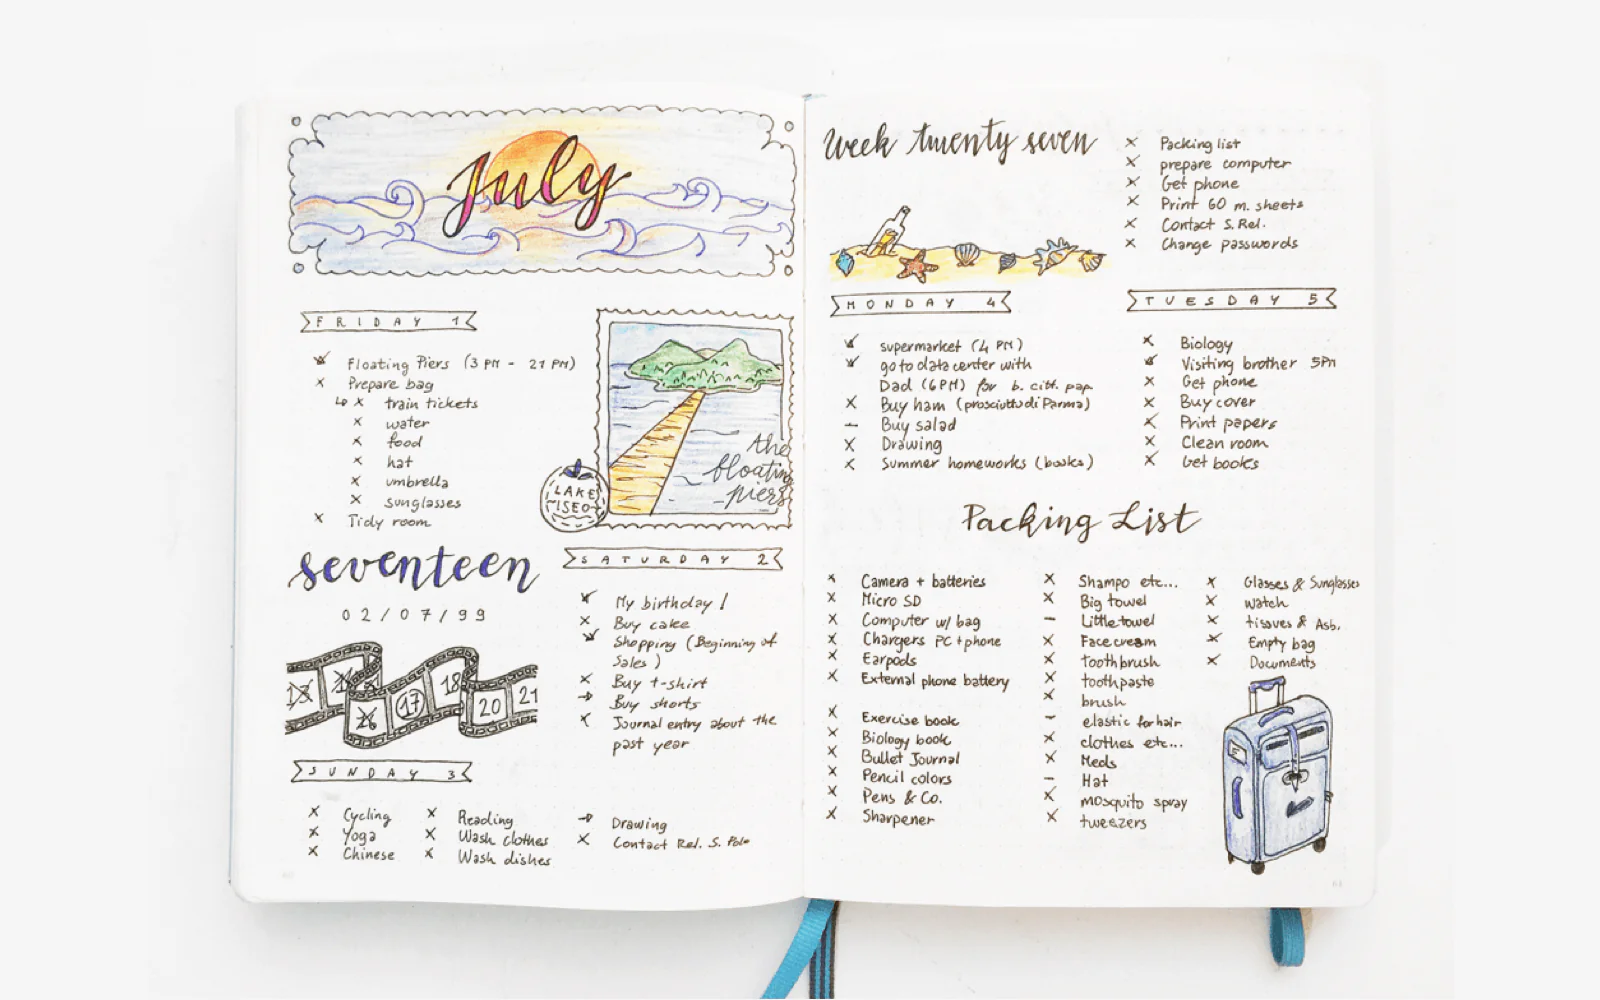 July
FRIDAY 1
Floating Piers (3 PM - 21 PM)
Prepare bag
train tickets
water
food
hat
umbrella
sunglasses
Tidy room
the
floating
piers
LAKE
ISEO
seventeen
02/07/99
16
17
18
20
21
SATURDAY 2
My birthday!
Buy cake
Shopping (Beginning of
Sales)
Buy t-shirt
Buy shorts
Journal entry about the
past year
SUNDAY 3
Cycling
Yoga
Chinese
Reading
Wash clothes
Wash dishes
Drawing
Contact Rel. S. Polo
Week twenty seven
Packing list
prepare computer
Get phone
Print 60 m. sheets
Contact S. Rel.
Change passwords
MONDAY 4
supermarket (4 PM)
go to data center with
Dad (6PM) for b. citt. pap.
Buy ham (prosciutto di Parma)
Buy salad
Drawing
Summer homeworks (books)
TUESDAY 5
Biology
Visiting brother 5PM
Get phone
Buy cover
Print papers
Clean room
Get books
Packing List
Camera + batteries
Micro SD
Computer w/ bag
Chargers PC + phone
Earpods
External phone battery
Exercise book
Biology book
Bullet Journal
Pencil colors
Pens & Co.
Sharpener
Shampo etc...
Big towel
Little towel
Face cream
toothbrush
toothpaste
brush
elastic for hair
clothes etc...
Meds
Hat
mosquito spray
tweezers
Glasses & Sunglasses
watch
tissues & Asb.
Empty bag
Documents